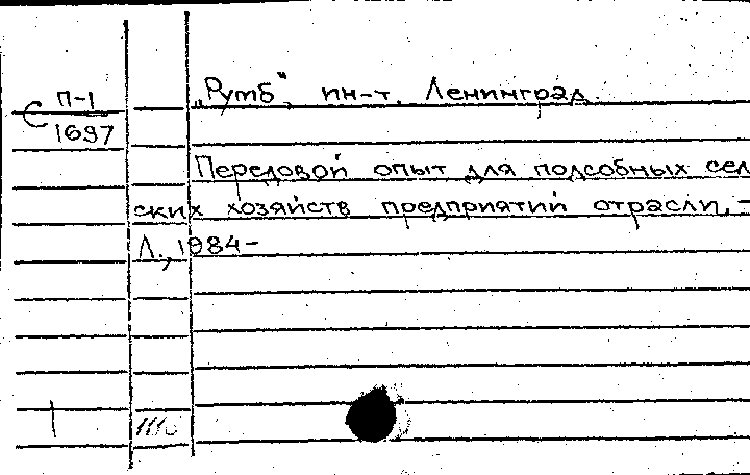 С П-1
1697
„Румб", ин-т. Ленинград.
Передовой опыт для подсобных сел
ских хозяйств предприятий отрасли, -
Л., 1984-